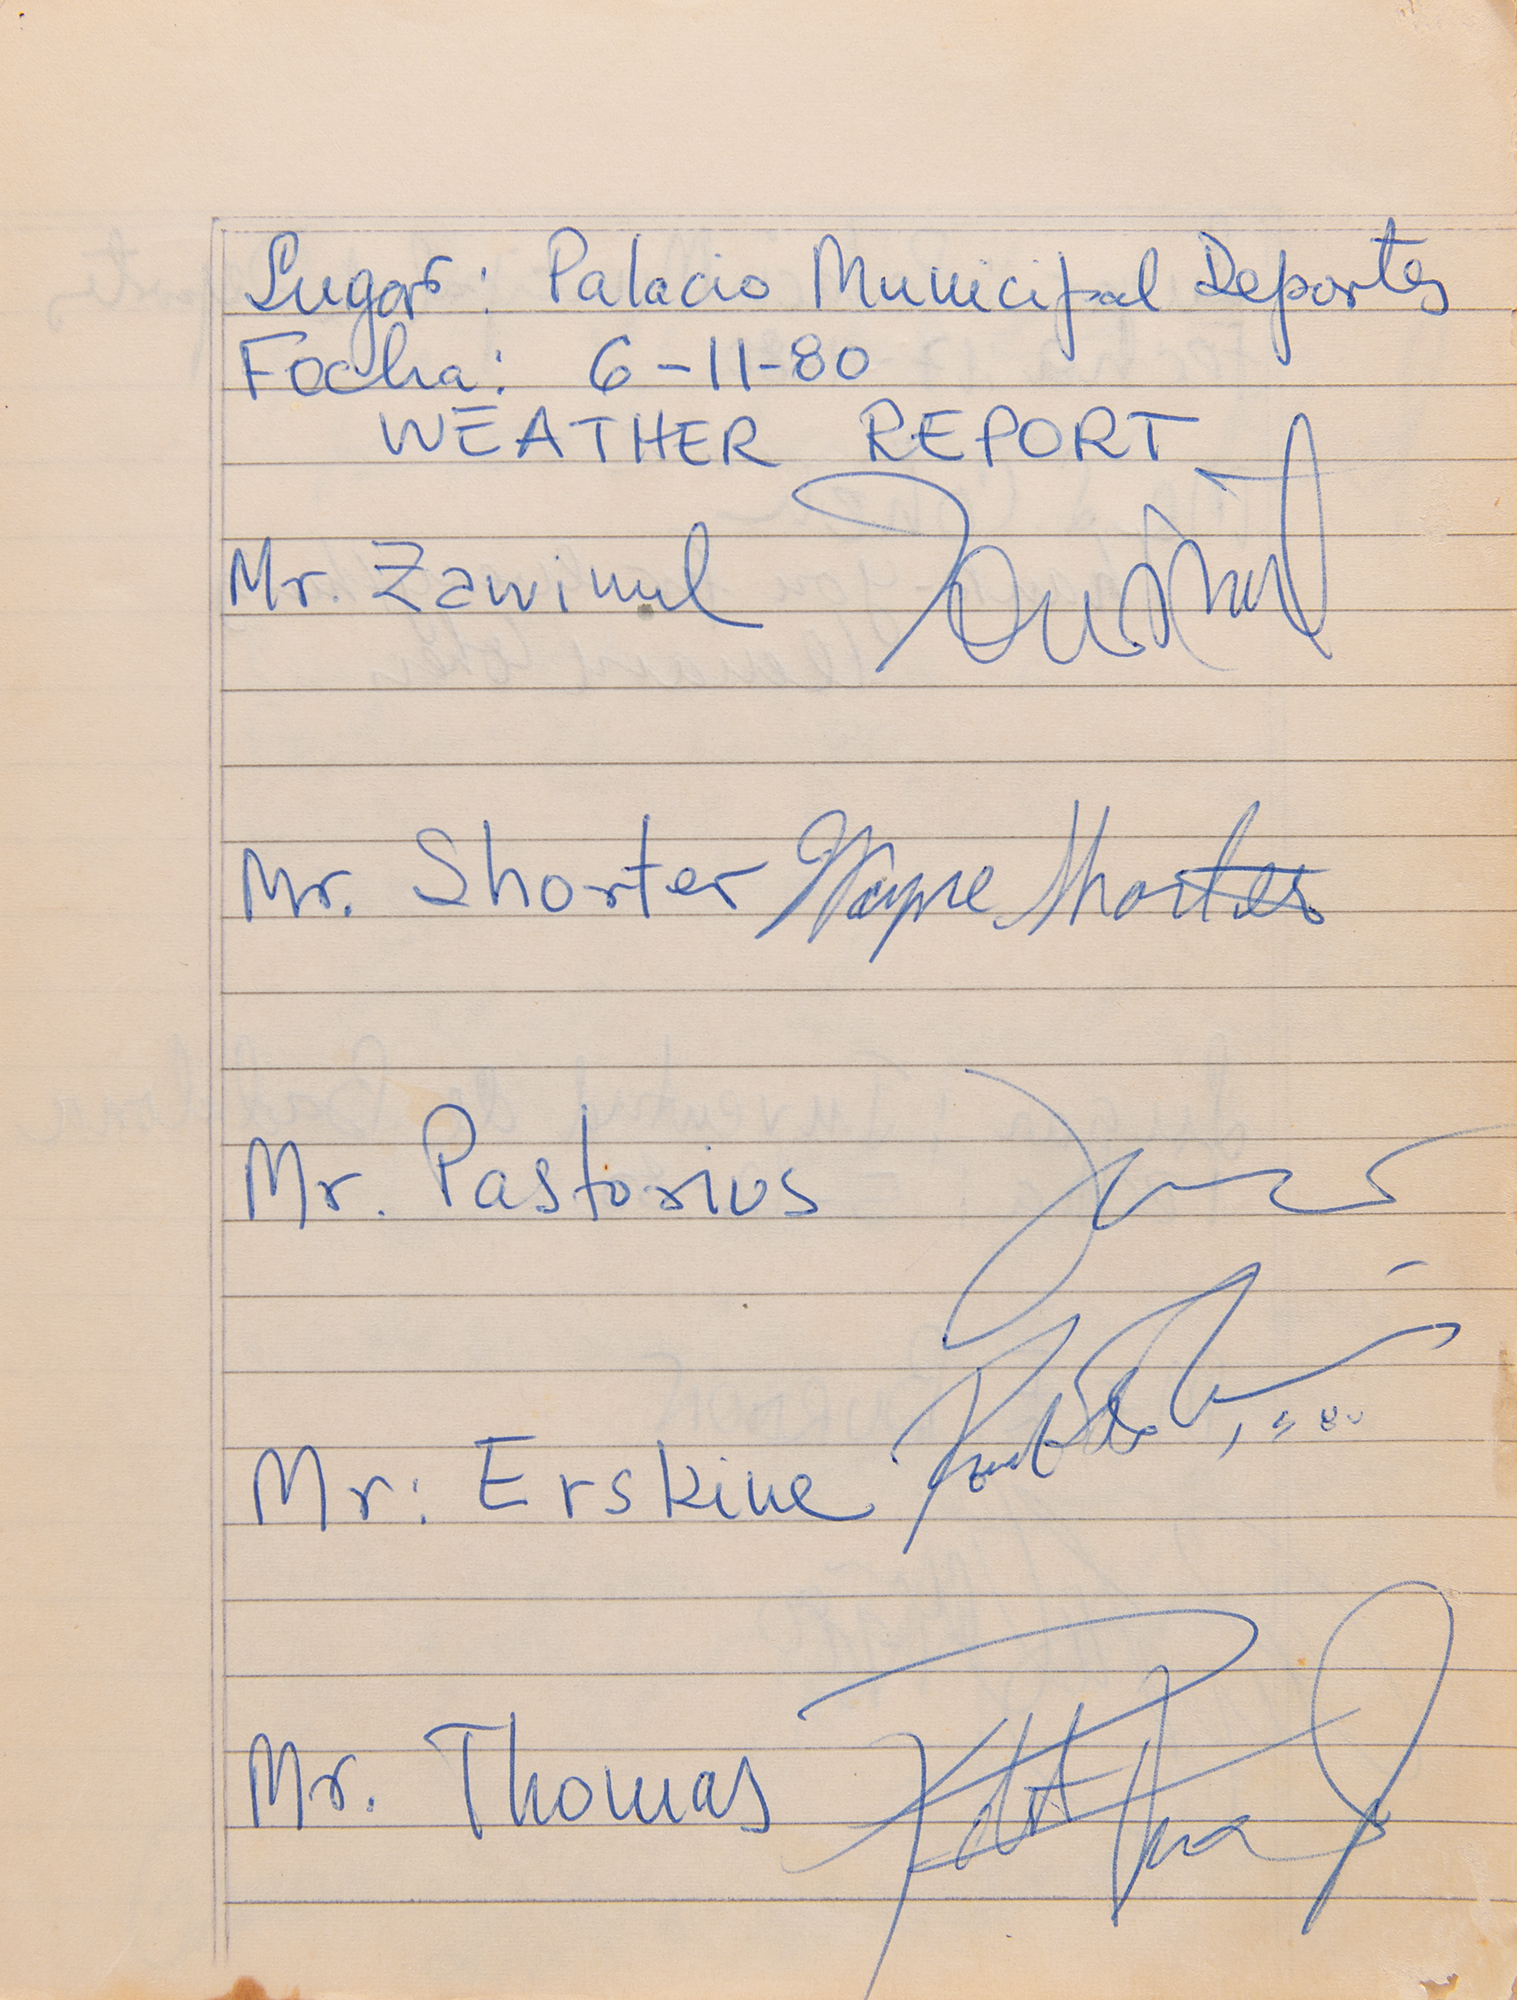 Lugar: Palacio Municipal Deportes
Fecha: 6-11-80
WEATHER REPORT
Mr. Zawinul Zawinul
Mr. Shorter Wayne Shorter
Mr. Pastorius
Mr: Erskine
Mr. Thomas